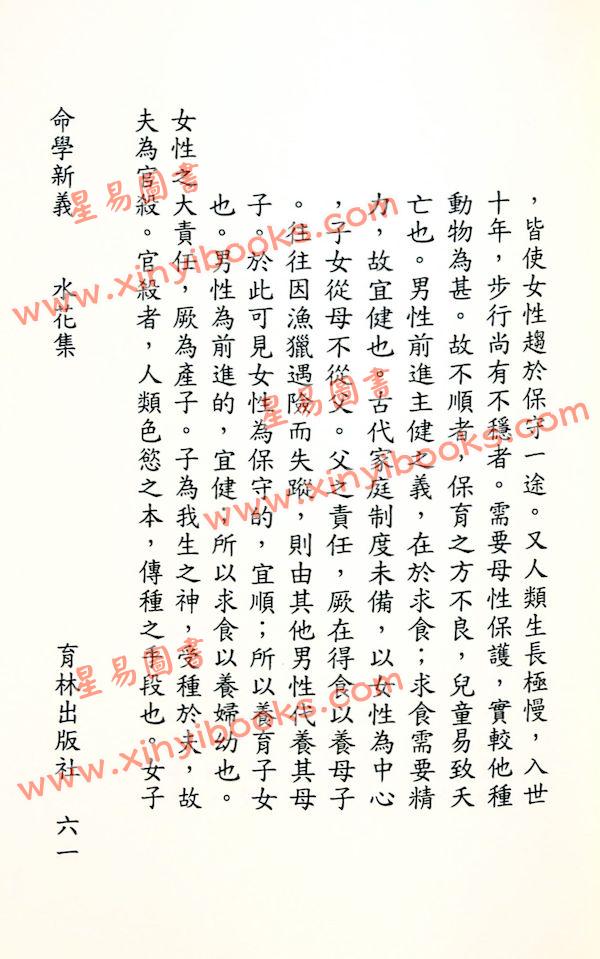 ，皆使女性趨於保守一途。又人類生長極慢，入世
十年，步行尚有不穩者。需要母性保護，實較他種
動物為甚。故不順者，保育之方不良，兒童易致夭
亡也。男性前進主健之義，在於求食；求食需要精
力，故宜健也。古代家庭制度未備，以女性為中心
，子女從母不從父。父之責任，厥在得食以養母子
。往往因漁獵遇險而失蹤，則由其他男性代養其母
子。於此可見女性為保守的，宜順；所以養育子女
也。男性為前進的，宜健；所以求食以養婦幼也。
女性之大責任，厥為產子。子為我生之神，受種於夫，故
夫為官殺。官殺者，人類色慾之本，傳種之手段也。女子
命學新義 水花集 育林出版社 六一
星易圖書
www.xinyibooks.com
星易圖書
www.xinyibooks.com
星易圖書
www.xinyibooks.com